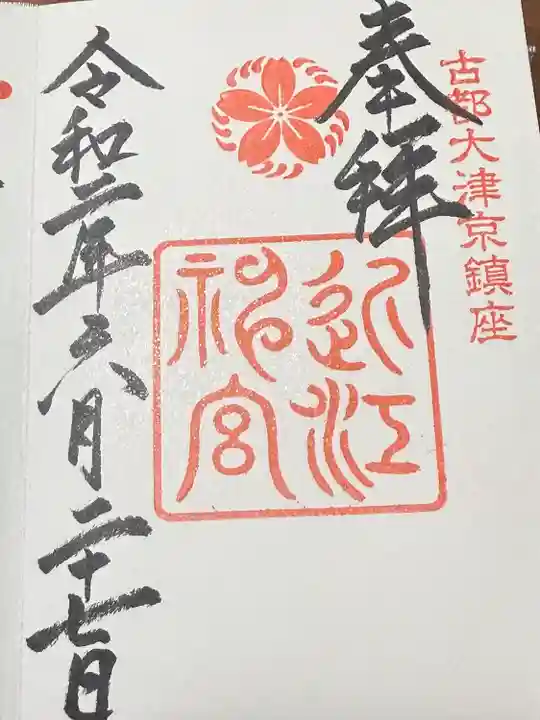 古都大津京鎮座
奉拝
近江
神宮
令和二年六月二十七日